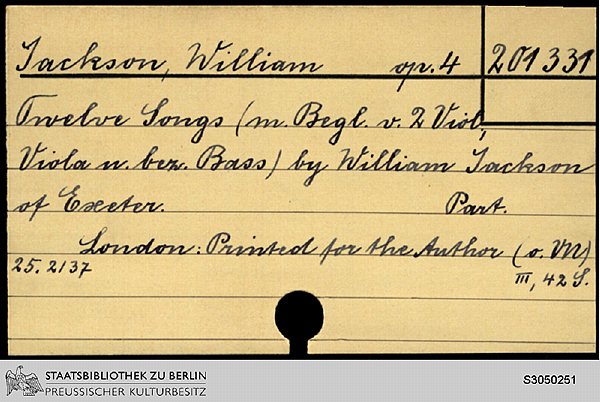 Jackson, William op. 4 201 331
Twelve Songs (m. Begl. v. 2 Viol,
Viola u. bez. Bass) by William Jackson
of Exeter. Part.
London: Printed for the Author (o. VN)
25. 2137 III, 42 S.
STAATSBIBLIOTHEK ZU BERLIN
PREUSSISCHER KULTURBESITZ
S3050251